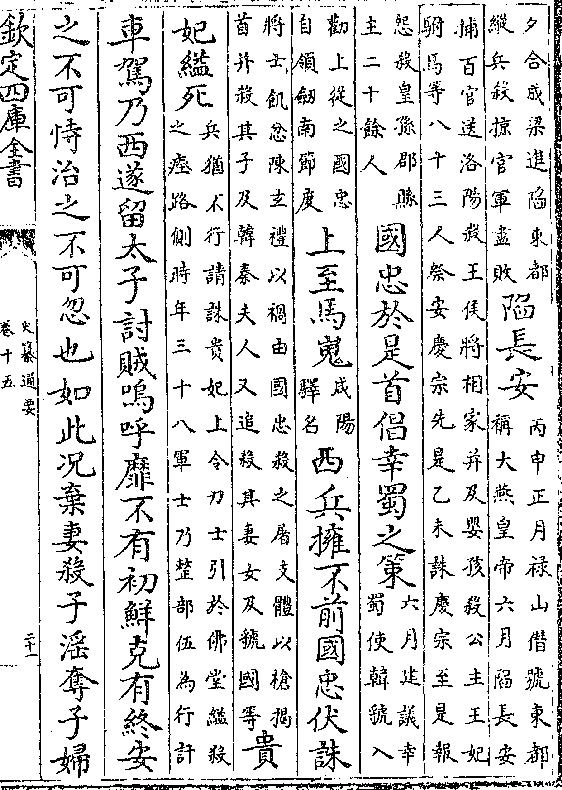 夕合咸梁進陷東都
縱兵殺掠官軍盡敗
陷長安
丙申正月禄山僣號東都
稱大燕皇帝六月陷長安
捕百官送洛陽殺王侯將相家并及嬰孩殺公主王妃
駙馬等八十三人祭安慶宗先是乙未誅慶宗至是報
怨殺皇孫郡縣
主二十餘人
國忠於是首倡幸蜀之策
六月建議幸
蜀使韓虢入
勸上從之國忠
自領劒南節度
上至馬嵬
咸陽
驛名
西兵擁不前國忠伏誅
將士飢忿陳玄禮以禍由國忠殺之屠支體以槍揭
首并殺其子及韓秦夫人又追殺其妻女及虢國等
貴
妃縊死
兵猶不行請誅貴妃上令力士引於佛堂縊殺
之瘞路側時年三十八軍士乃整部伍為行計
車駕乃西遂留太子討賊嗚呼靡不有初鮮克有終安
之不可恃治之不可忽也如此况棄妻殺子淫奪子婦
欽定四庫全書
史纂通要
卷十五
二十一